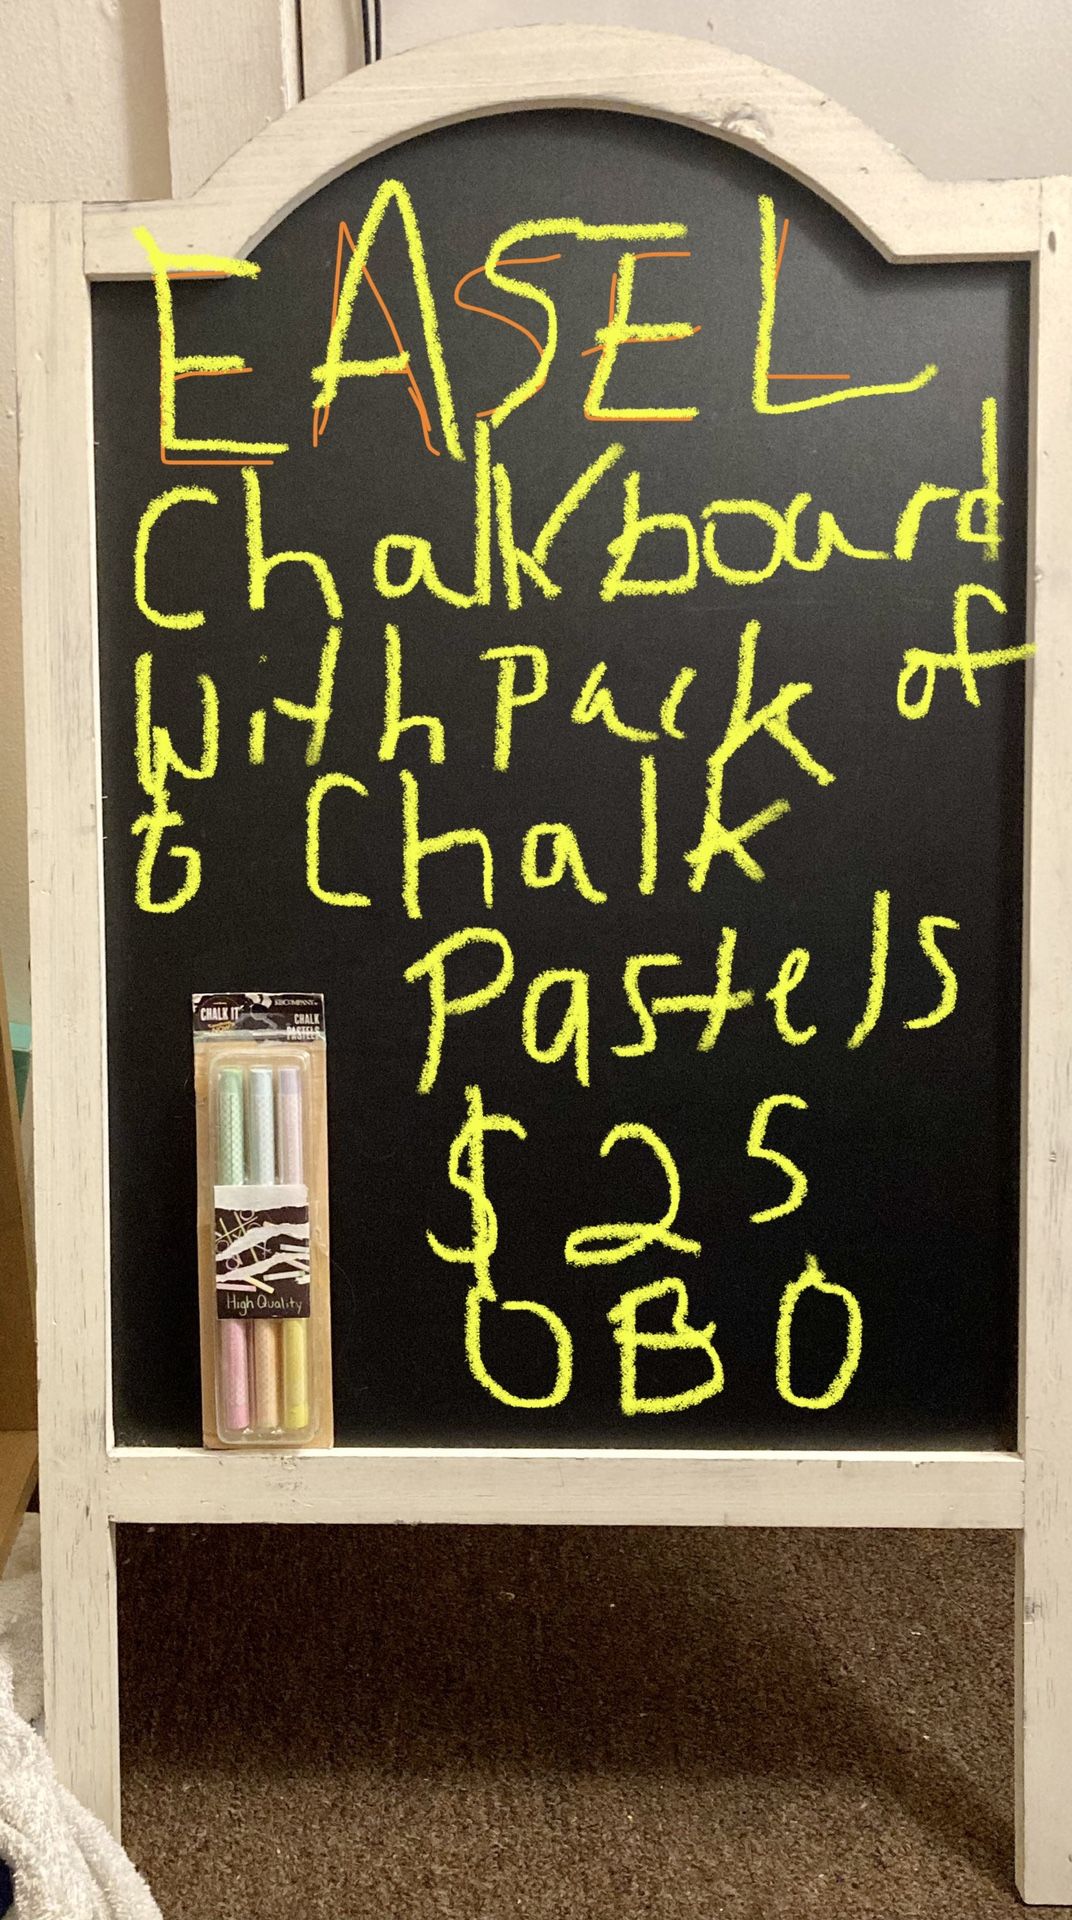 EASEL
Chalkboard
with pack of
6 Chalk
Pastels
$25
OBO
CHALK IT
KBCOMPANY
CHALK
PASTELS
High Quality